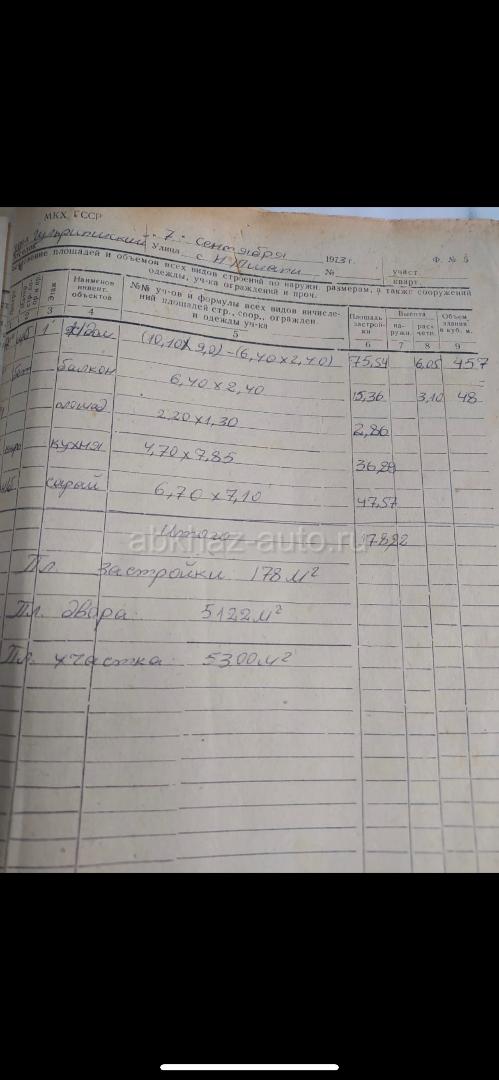 МКХ ГССР
Гульрипшский "7" сентября 1973 г. Ф. № 5
Улица с. №
участ.
площадей и объемов всех видов строений по наружн. размерам, а также сооружений
одежды, уч-ка ограждений и проч.
кварт.
Этаж
Наименов инвент. объектов
№№ уч-ов и формулы всех видов вычислений площадей стр., соор., огражден. и одежды уч-ка
Площадь застройки
Высота
наружн.
расчетн.
Объем здания в куб. м.
3 4 5 6 7 8 9
1 дом (10,10 х 9,0) - (6,40 х 2,40) 75,54 6,05 457
балкон 6,40 х 2,40 15,36 3,10 48
площад 2,20 х 1,30 2,86
кухня 4,70 х 7,85 36,89
сарай 6,70 х 7,10 47,57
Итого 178,22
abkhaz-auto.ru
Пл. застройки 178 м²
Пл. двора: 5122 м²
Пл. участка: 5300 м²